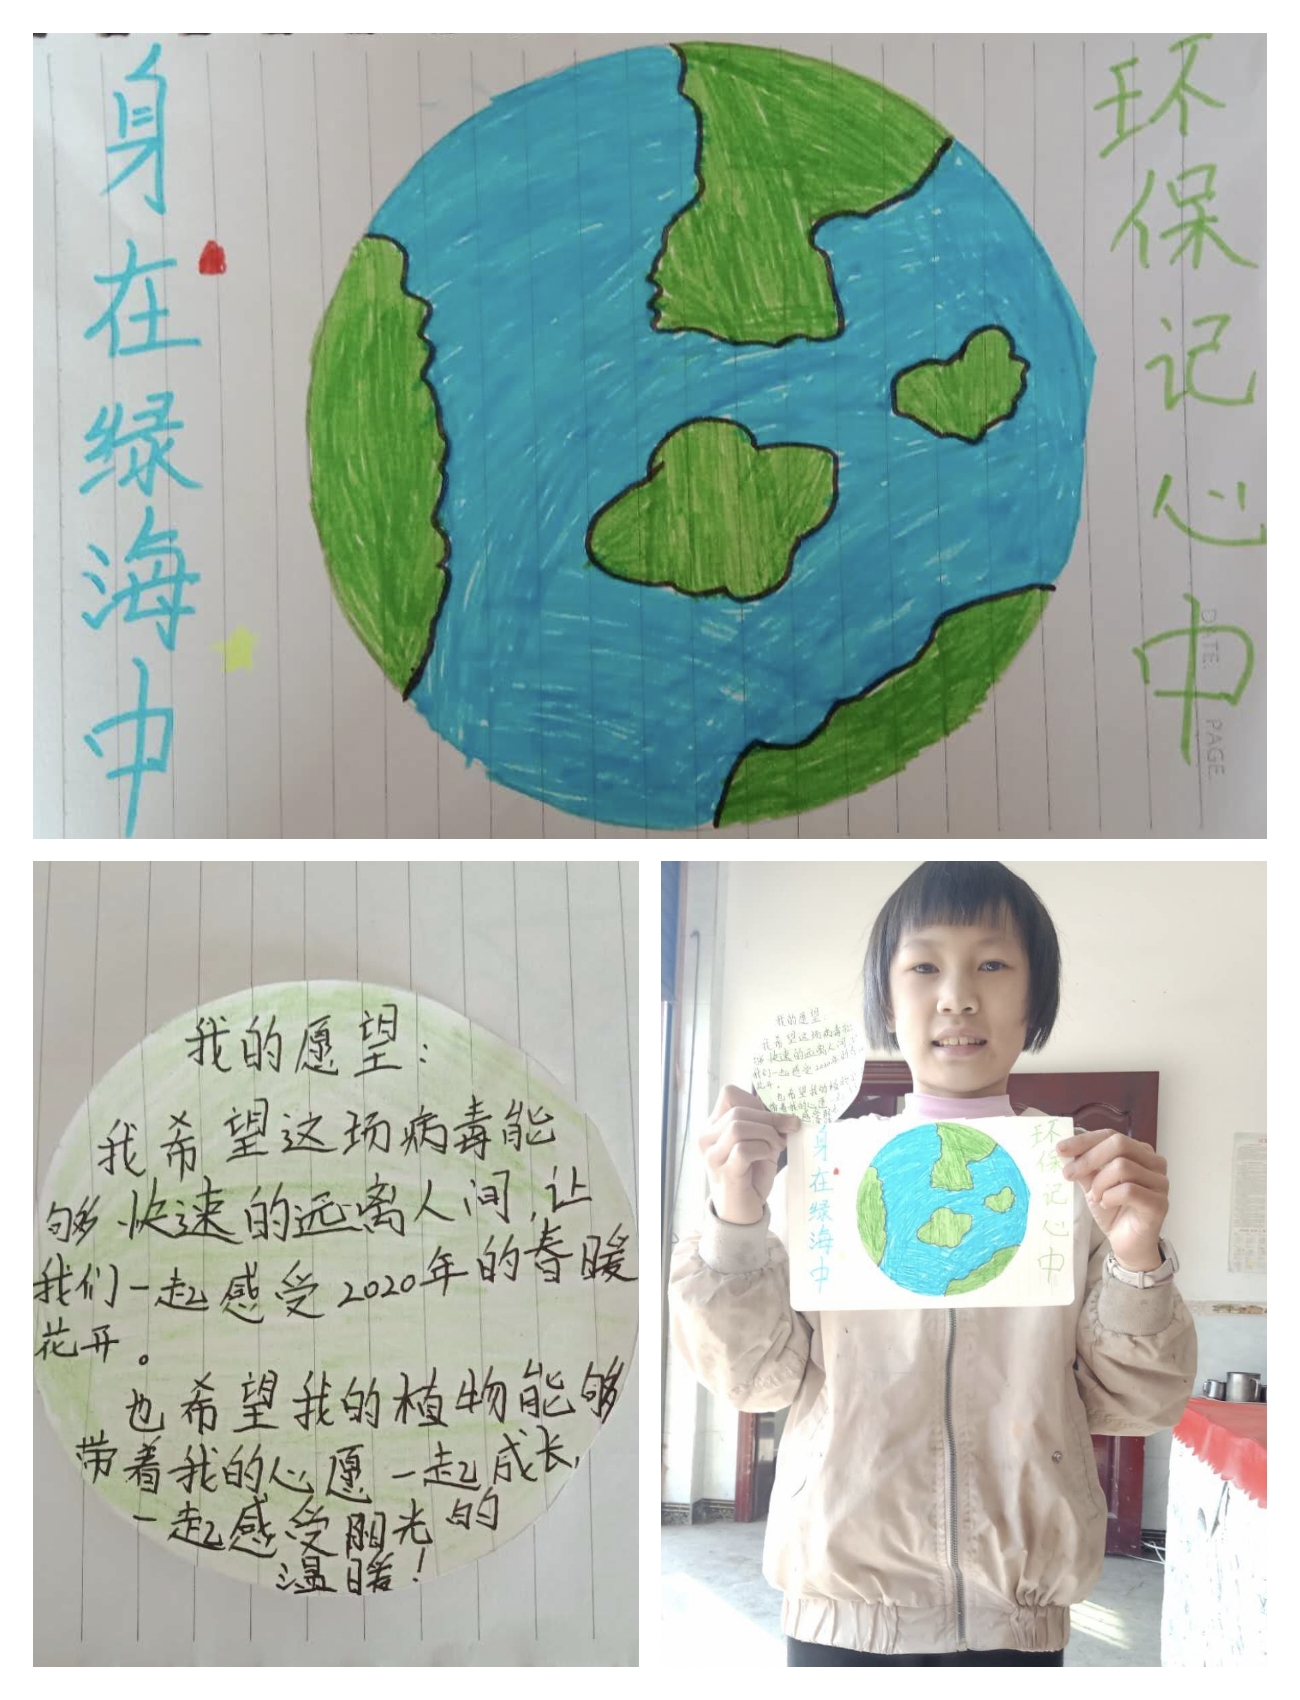 身在绿海中
环保记心中
DATE.
PAGE.
我的愿望:
我希望这场病毒能
够快速的远离人间,让
我们一起感受2020年的春暖
花开。
也希望我的植物能够
带着我的心愿一起成长,
一起感受阳光的
温暖!
我的愿望:
我希望这场病毒能
够快速的远离人间
我们一起感受2020年的春
花开。
也希望我的植物
带着我的心愿
身在绿海中
环保记心中